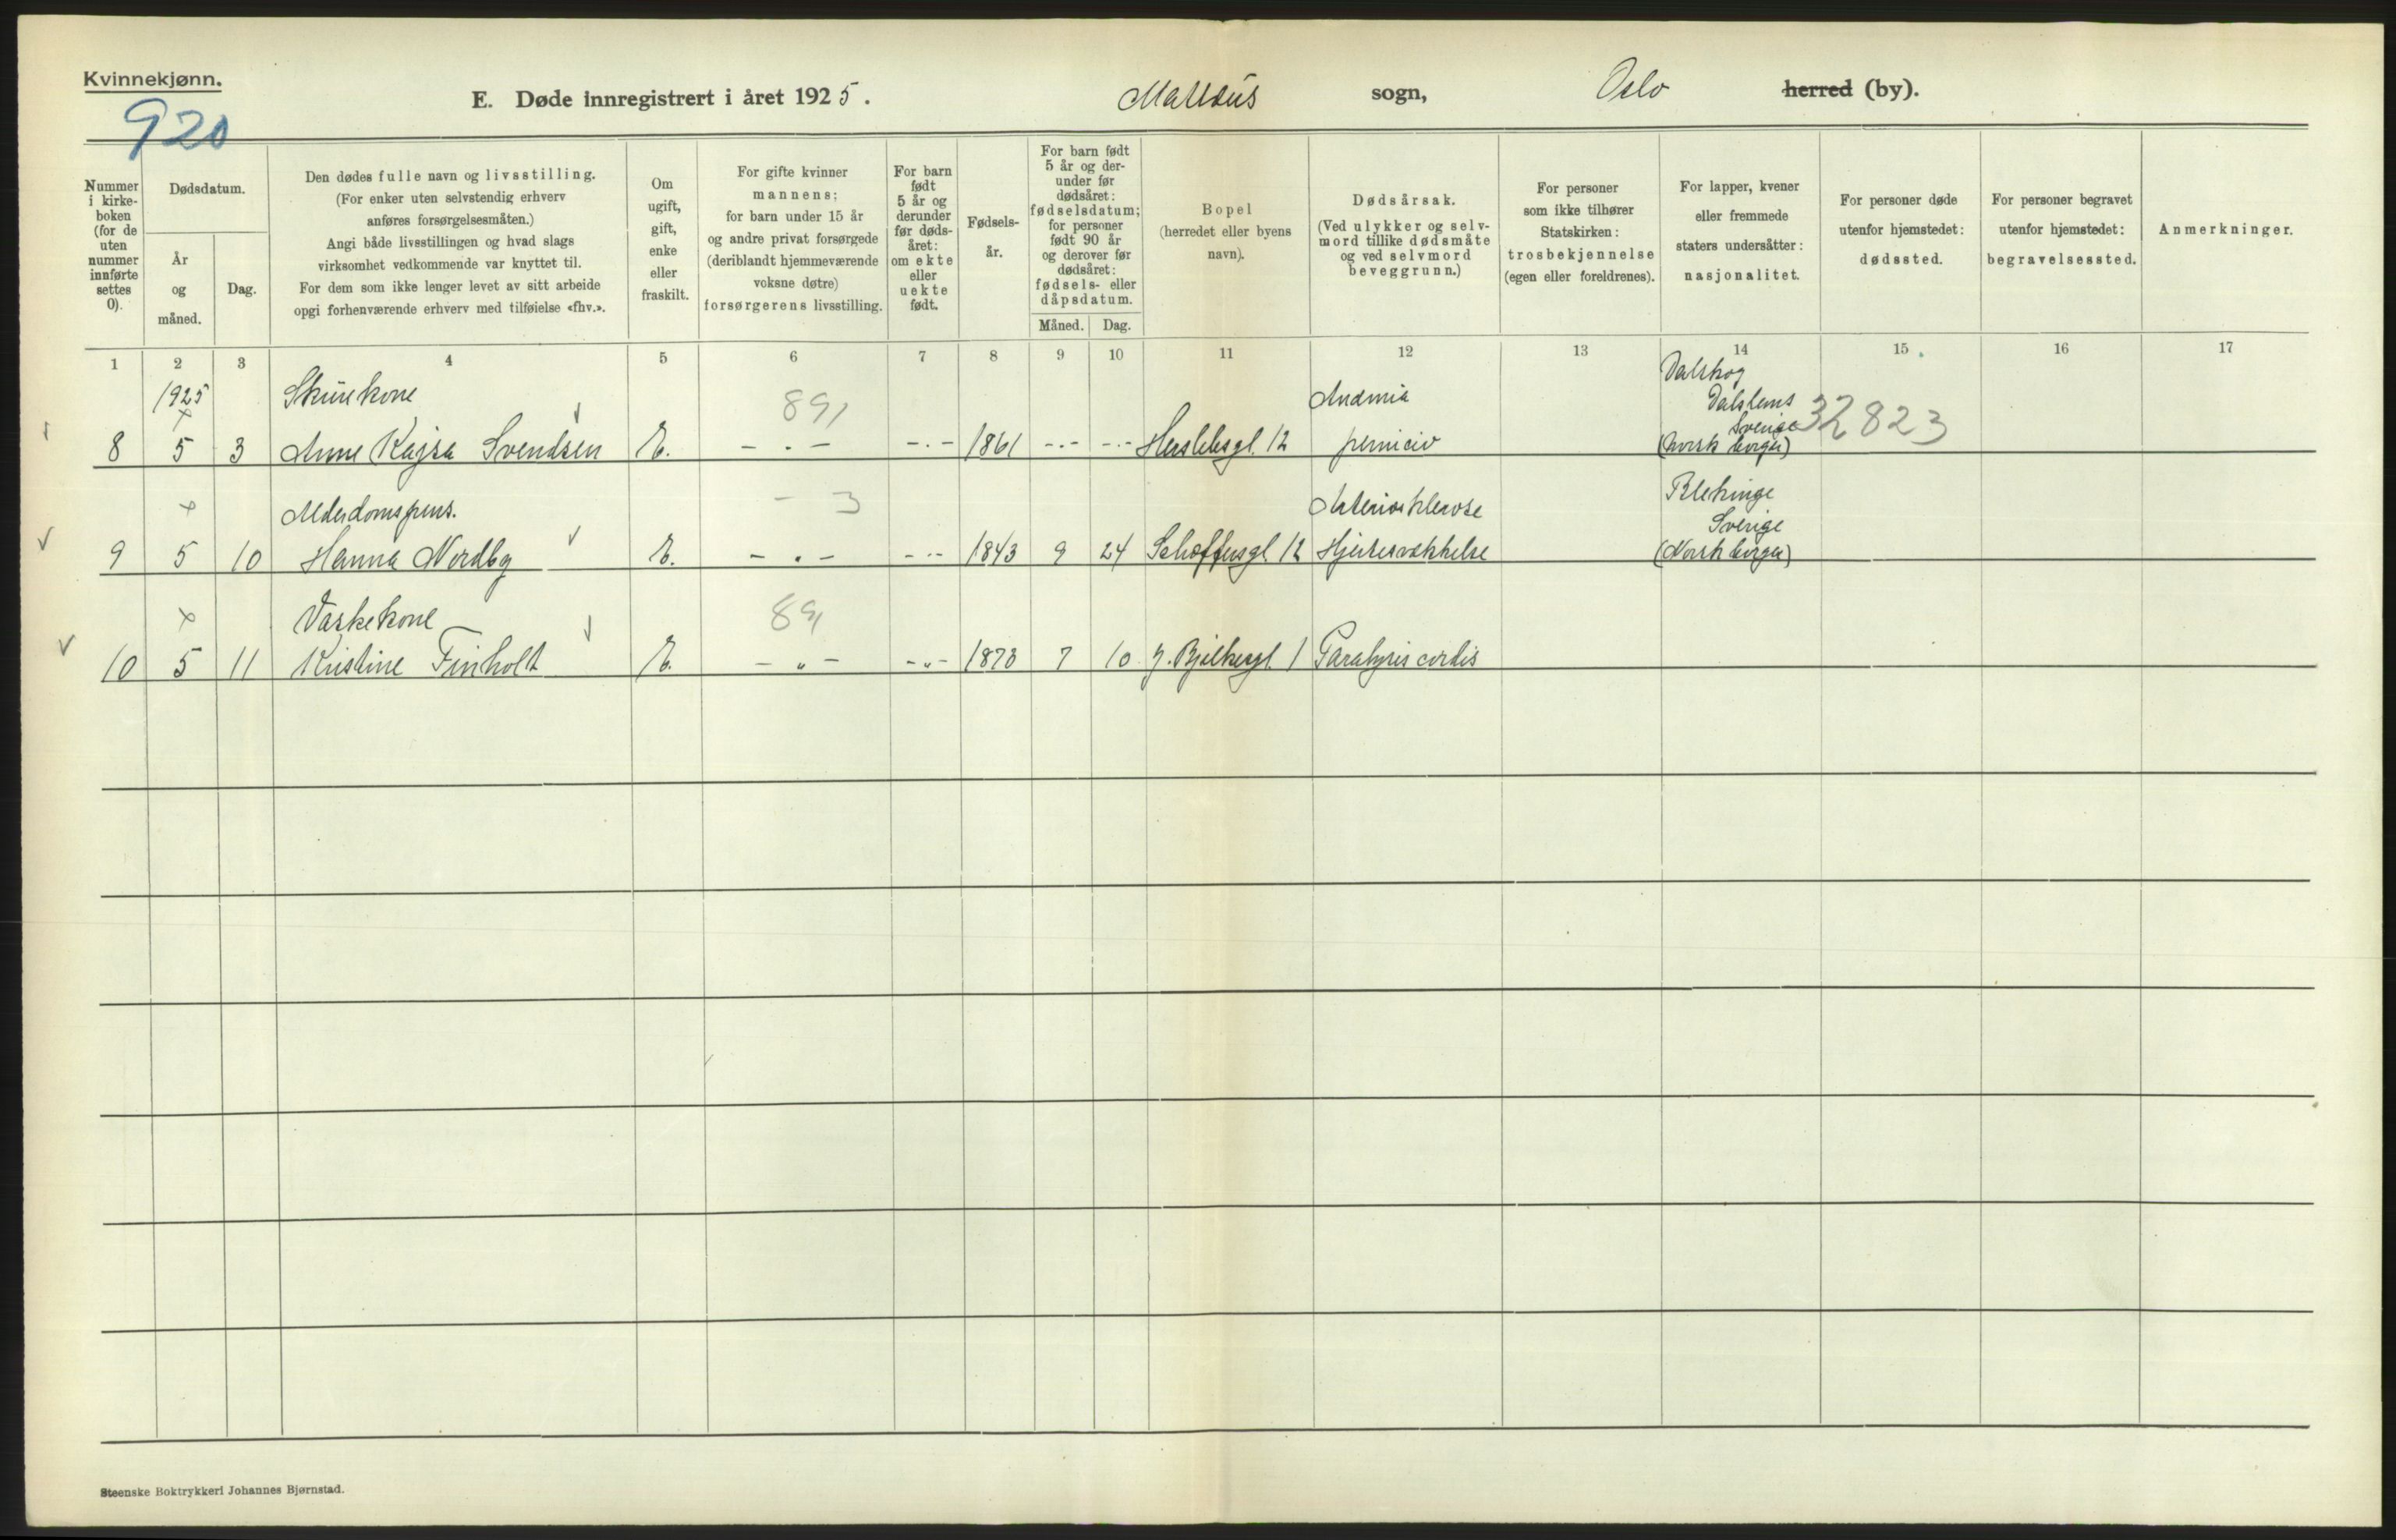 Kvinnekjønn.
920
E. Døde innregistrert i året 1925. Matteus sogn, Oslo herred (by).
Nummer i kirke-boken (for de uten nummer innførte settes 0).
Dødsdatum.
År og måned.
Dag.
Den dødes fulle navn og livsstilling.
(For enker uten selvstendig erhverv
anføres forsørgelsesmåten.)
Angi både livsstillingen og hvad slags
virksomhet vedkommende var knyttet til.
For dem som ikke lenger levet av sitt arbeide
opgi forhenværende erhverv med tilføielse «fhv.».
Om ugift, gift, enke eller fraskilt.
For gifte kvinner
mannens;
for barn under 15 år
og andre privat forsørgede
(deriblandt hjemmeværende
voksne døtre)
forsørgerens livsstilling.
For barn født 5 år og derunder før døds-året: om ekte eller uekte født.
Fødsels-år.
For barn født 5 år og der-under før dødsåret: fødselsdatum; for personer født 90 år og derover før dødsåret: fødsels- eller dåpsdatum.
Måned. Dag.
Bopel
(herredet eller byens
navn).
Dødsårsak.
(Ved ulykker og selv-
mord tillike dødsmåte
og ved selvmord
beveggrunn.)
For personer
som ikke tilhører
Statskirken:
trosbekjennelse
(egen eller foreldrenes).
For lapper, kvener
eller fremmede
staters undersåtter:
nasjonalitet.
For personer døde
utenfor hjemstedet:
dødssted.
For personer begravet
utenfor hjemstedet:
begravelsessted.
Anmerkninger.
1 2 3 4 5 6 7 8 9 10 11 12 13 14 15 16 17
1925 Skurekone 891 Anæmia Dalskog
Dalslands
Sverige 32823
8 5 3 Anne Kajsa Svendsen E. - . - - . - 1861 - . - - . - Herslebsgt. 12 perniciø (norsk borger)
x Alderdomspens. - 3 Arteriosklerose Blekinge
Sverige
9 5 10 Hanna Nordby E. - . - - . - 1843 9 24 Schoffusgt. 12 Hjertesvækkelse (Norsk borger)
x Vaskekone 891
10 5 11 Kristine Finholt E. - „ - - „ - 1873 7 10 J. Bjelkesgt. 1 Paralysis cordis
Steenske Boktrykkeri Johannes Bjørnstad.